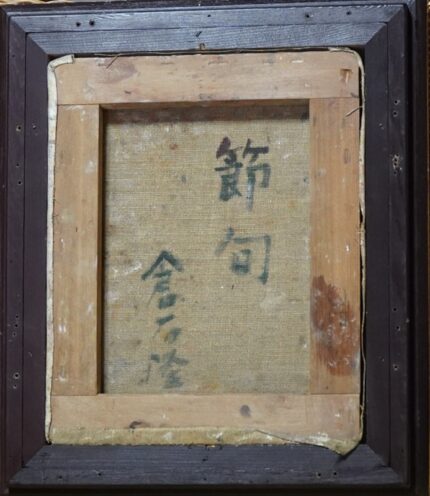 節句
倉石隆